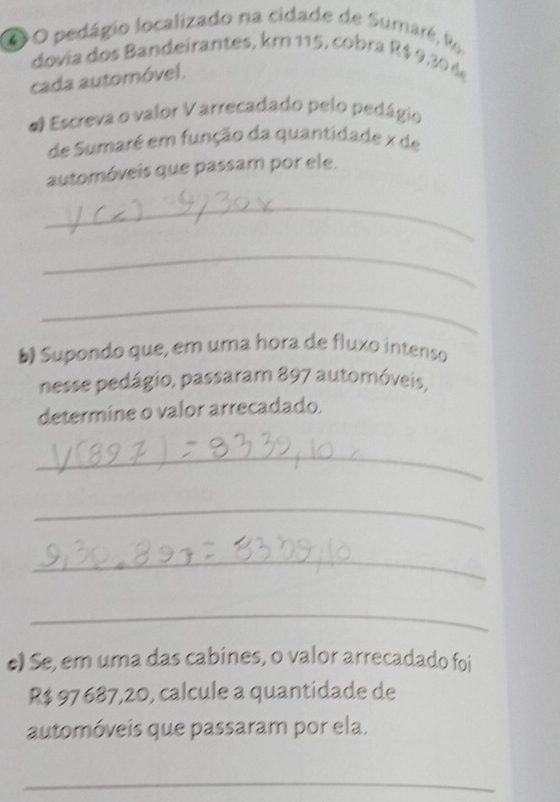 4 O pedágio localizado na cidade de Sumaré, Ro-
dovia dos Bandeirantes, km 115, cobra R$ 9,30 de
cada automóvel.
a) Escreva o valor V arrecadado pelo pedágio
de Sumaré em função da quantidade x de
automóveis que passam por ele.
V(x) = 9,30x
b) Supondo que, em uma hora de fluxo intenso
nesse pedágio, passaram 897 automóveis,
determine o valor arrecadado.
V(897) = 8339,10
9,30.897 = 8339,10
c) Se, em uma das cabines, o valor arrecadado foi
R$ 97 687,20, calcule a quantidade de
automóveis que passaram por ela.